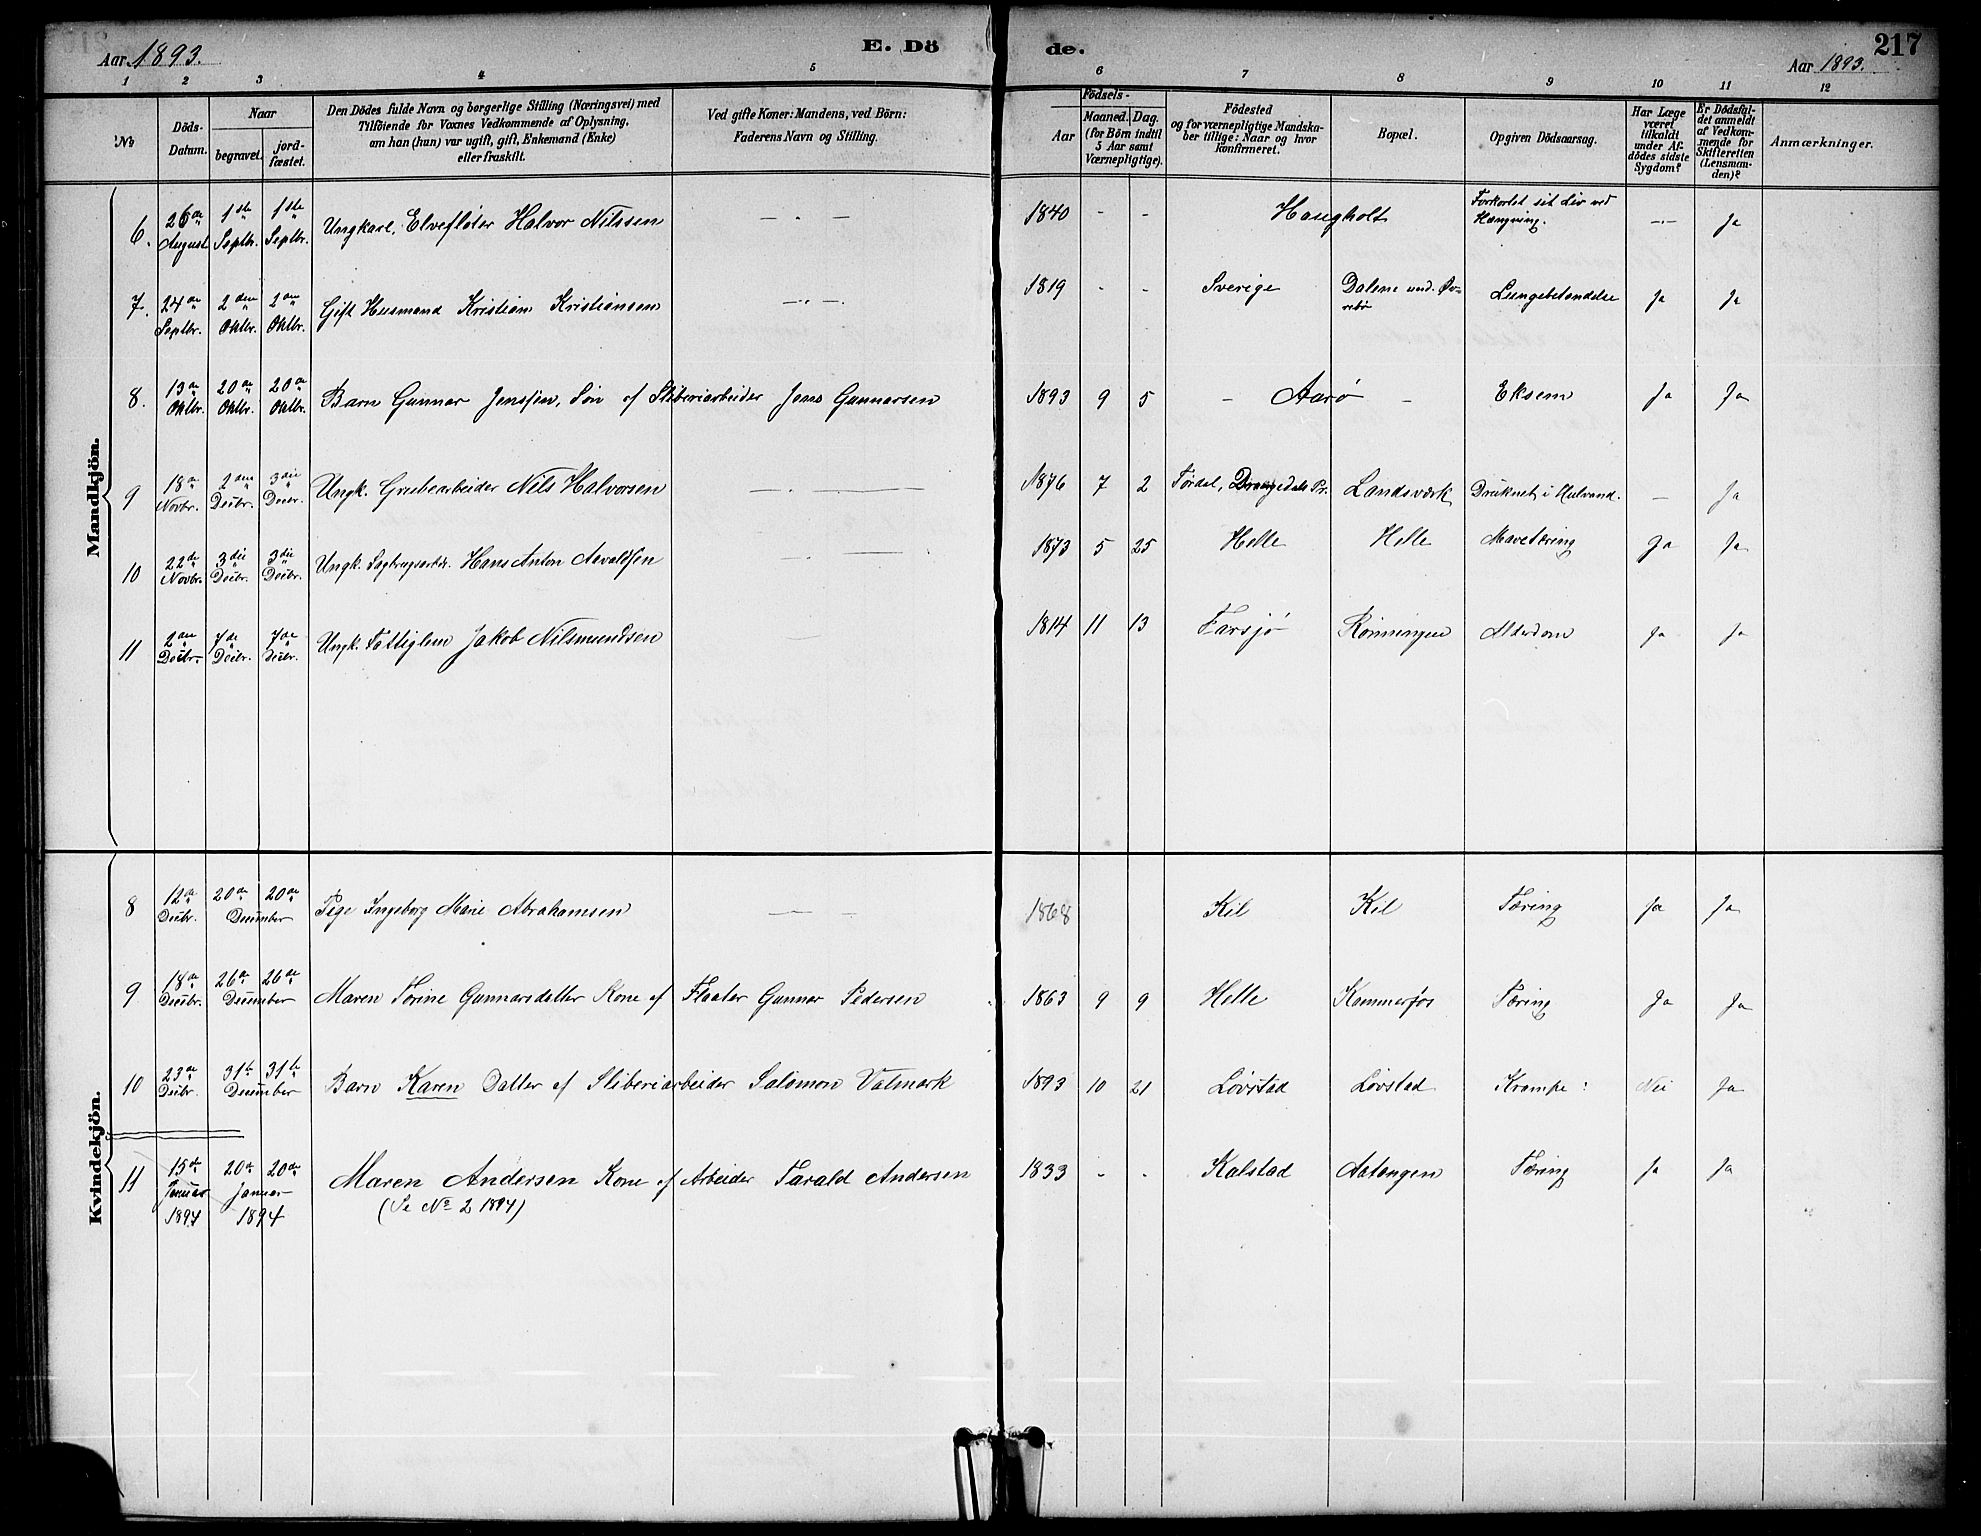 Aar 1893.
E. Dö
de.
217
Aar 1893.
1 2 3 4 5 6 7 8 9 10 11 12
No
Döds-Datum.
Naar
begravet.
jord-fæstet.
Den Dödes fulde Navn og borgerlige Stilling (Næringsvei) med
Tilföiende for Voxnes Vedkommende af Oplysning,
om han (hun) var ugift, gift, Enkemand (Enke)
eller fraskilt.
Ved gifte Koner: Mandens, ved Börn:
Faderens Navn og Stilling.
Födsels-
Aar
Maaned. Dag.
(for Börn indtil
5 Aar samt
Værnepligtige).
Födested
og for værnepligtige Mandska-
ber tillige: Naar og hvor
konfirmeret.
Bopæl.
Opgiven Dödsaarsag.
Har Læge
været
tilkaldt
under Af-
dödes sidste
Sygdom?
Er Dödsfal-
det anmeldt
af Vedkom-
mende for
Skifteretten
(Lensman-
den)?
Anmærkninger.
Mandkjön.
6. 26de August 1ste Septbr. 1ste Septbr. Ungkarl, Elvefløter Halvor Nilssen — „ — 1840 - - Haugholt Forkortet sit Liv ved Hængning. —„— Ja
7. 24de Septbr. 2den Oktbr. 2den Oktbr. Gift Husmand Kristian Kristiansen —„—. 1819 - - Sverige Dalene und. Øv-rebø Lungebetændelse Ja Ja
8. 13de Oktbr. 20de Oktbr. 20de Oktbr. Barn Gunnar Jenssen, Søn af Sliberiarbeider Jens Gunnarsen 1893 9 5 - Aarø - Eksem Ja Ja
9 18de Novbr. 2den Decbr. 3die Decbr. Ungk. Grubearbeider Nils Halvorsen 1876 7 2 Tørdal, Drangedals Pr. Landsværk Druknet i Halvand. — Ja
10 22de Novbr. 3die Decbr. 3die Decbr. Ungk. Sagbrugsarbdr. Hans Anton Aavaldsen 1873 5 25 Helle Helle Mavetæring Ja Ja
11 2den Decbr. 7de Decbr. 7de Decbr. Ungk. Fattiglem Jakob Nilsmundsen 1814 11 13 Farsjø Rønningen Alderdom Ja Ja
Kvindekjön.
8 12de Decbr. 20de 20de December Pige Ingeborg Marie Abrahamsen 1868 Kil Kil Tæring Ja Ja
9 18de Decbr. 26de 26de December Maren Torine Gunnarsdatter Kone af Fløter Gunnar Pedersen 1863 9 9 Helle Kammerfos Tæring Ja Ja
10 23de Decbr. 31te 31te December Barn Karen Datter af Sliberiarbeider Salomon Valmark 1893 10 21 Løvstad Løvstad Krampe: Nei Ja
11 15de Januar 1894 20de 20de Januar 1894 Maren Andersen Kone af Arbeider Tarald Andersen 1833 - - Kalstad Aatangen Tæring Ja Ja
(Se No 2 1894)